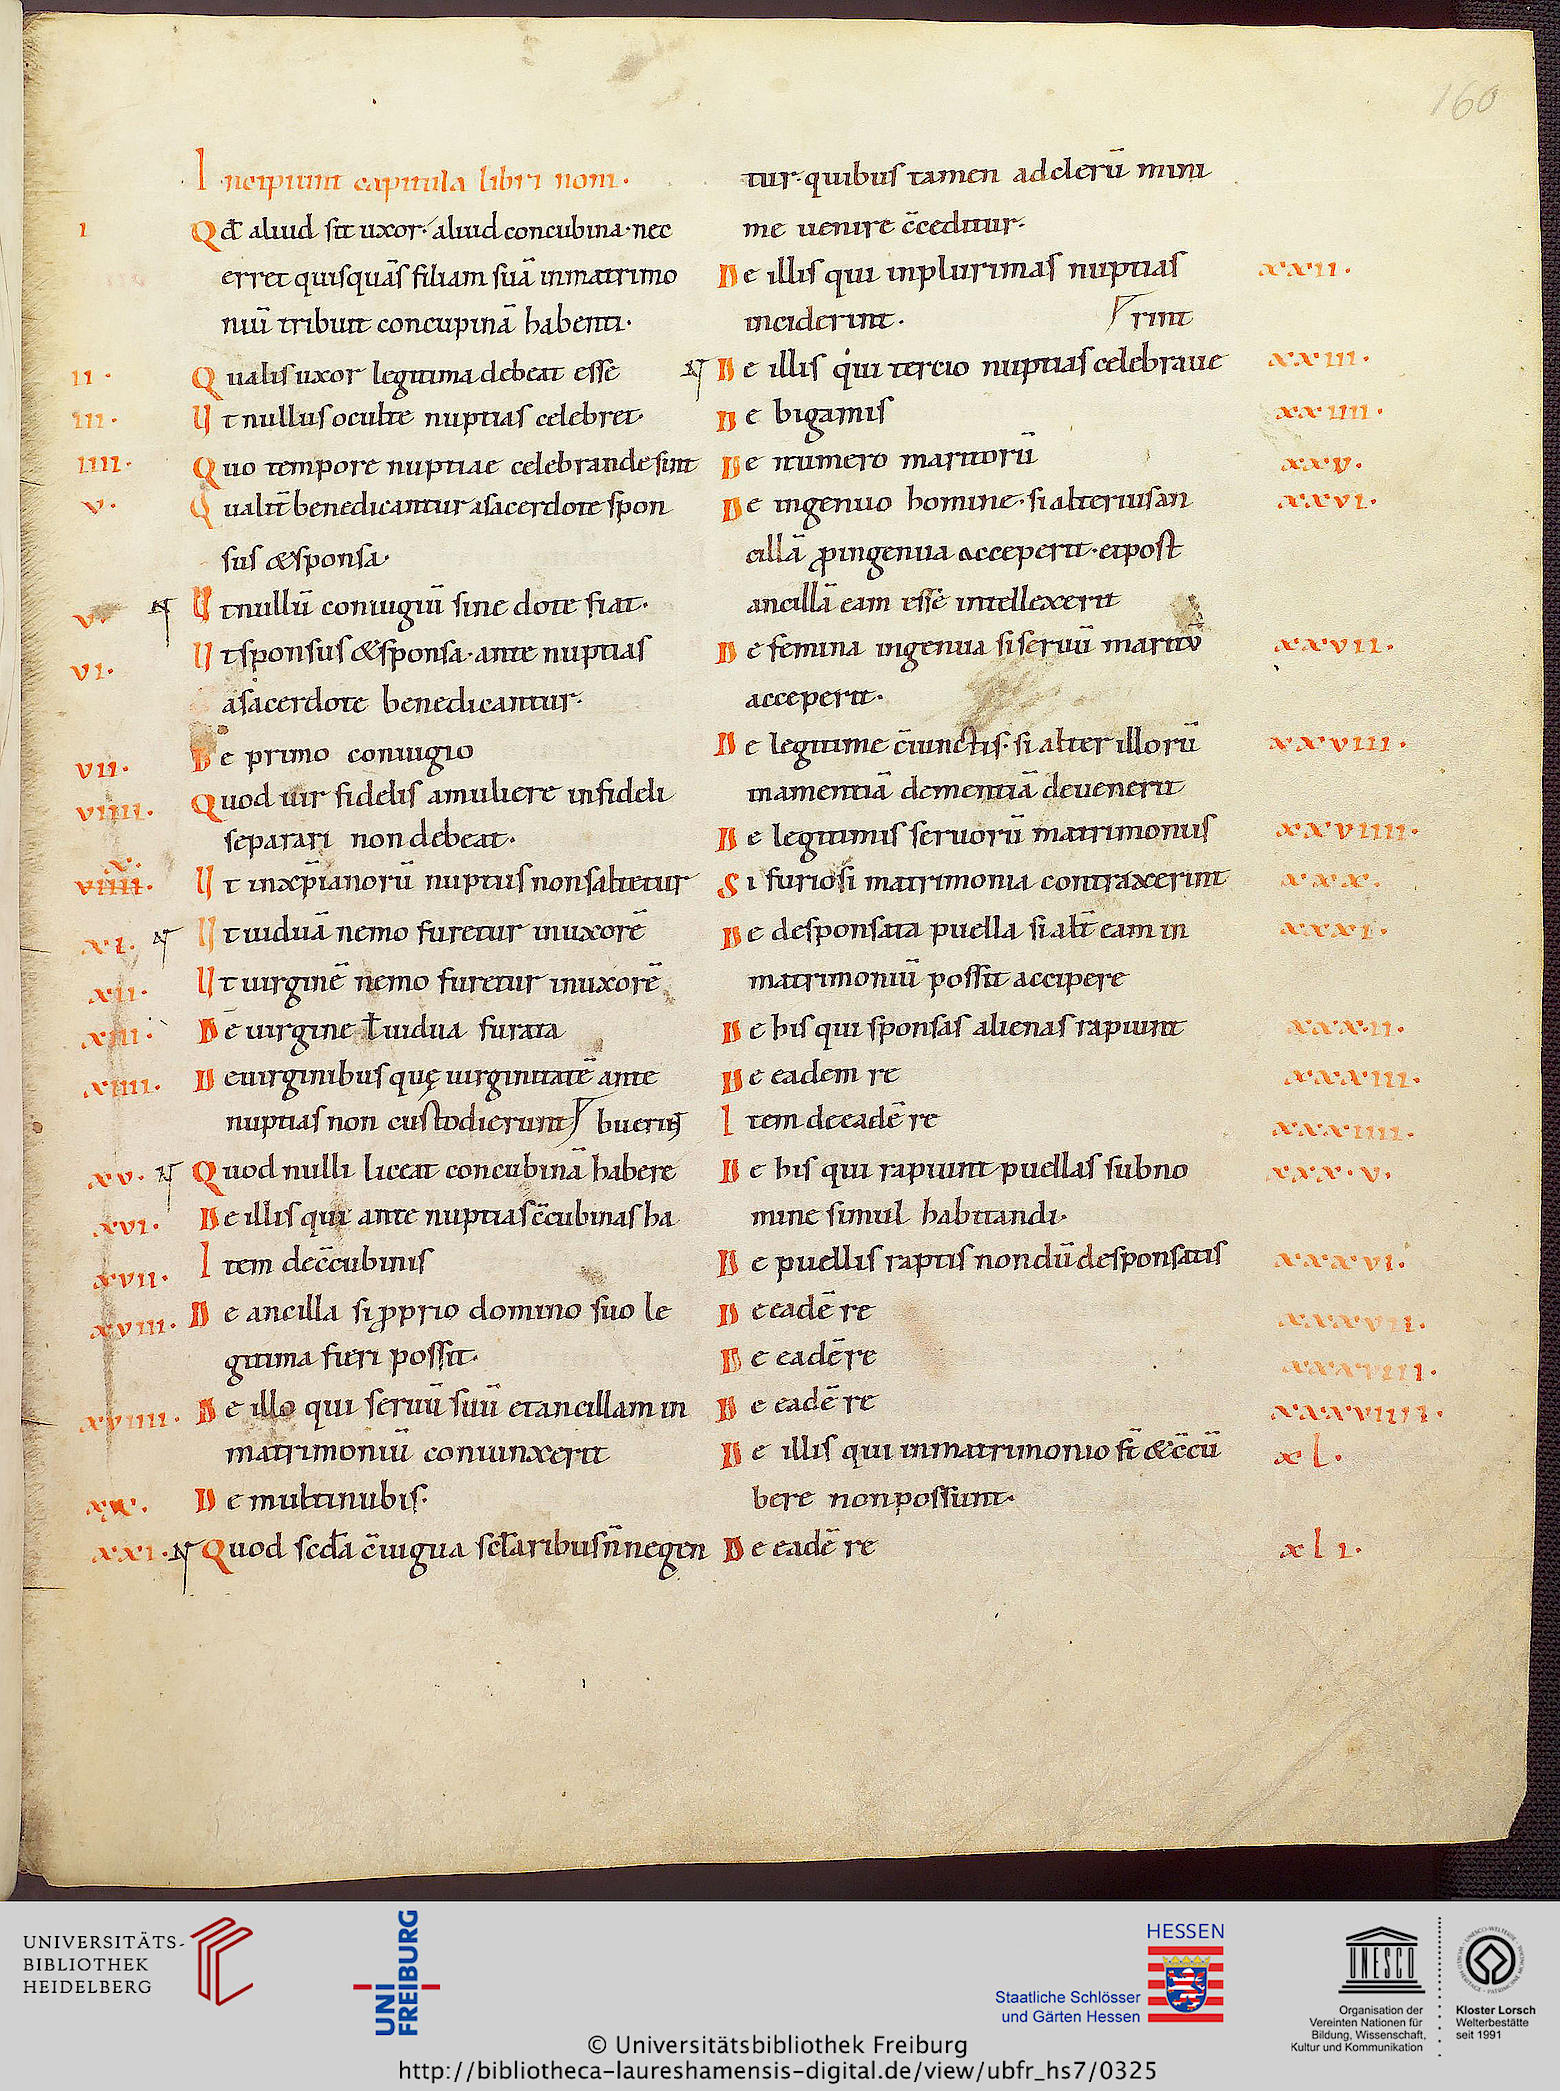 160
Incipiunt capitula libri noni·
i Qđ aliud sit uxor· aliud concubina· nec
erret quisquā s filiam suā in matrimo
niū tribuit concupinā habenti·
ii· Qualis uxor legitima debeat esse
iii· Ut nullus oculte nuptias celebret·
iiii· Quo tempore nuptiae celebrande sint
v· Qualit̄ benedicantur a sacerdote spon
sus & sponsa·
v Ut nullū coniugiū sine dote fiat·
vi· Ut sponsus & sponsa· ante nuptias
a sacerdote benedicantur·
vii· De primo coniugio
viiii· Quod uir fidelis a muliere infideli
separari non debeat·
x·
viiii· Ut in xp̄ianorū nuptiis non saltetur
xi· Ut uiduā nemo furetur in uxorē
xii· Ut uirginē nemo furetur in uxorē
xiii· De uirgine ł uidua furata
xiiii· De uirginibus quę uirginitatē ante
nuptias non custodierunt buerint
xv· Quod nulli liceat concubinā habere
xvi· De illis qui ante nuptias c̄cubinas ha
xvii· Item de c̄cubinis
xviii· De ancilla si ꝓprio domino suo le
gitima fieri possit·
xviiii· De illo qui seruū suū et ancillam in
matrimoniū coniunxerit
xx· De multinubis·
xxi· Quod scđa c̄iugia scłaribus n̄ negen
tur· quibus tamen ad clerū mini
me uenire c̄ceditur·
De illis qui in plurimas nuptias xxii·
inciderint· rint
De illis qui tercio nuptias celebraue xxiii·
De bigamis xxiiii·
De numero maritorū xxv·
De ingenuo homine· si alterius an xxvi·
cillā ꝓ ingenua acceperit· et post
ancillā eam esse intellexerit
De femina ingenua si seruū maritū xxvii·
acceperit·
De legitime c̄iunctis· si alter illorū xxviii·
in amentiā dementiā deuenerit
De legitimis seruorū matrimoniis xxviiii·
Si furiosi matrimonia contraxerint xxx·
De desponsata puella si alt̄ eam in xxxi·
matrimoniū possit accipere
De his qui sponsas alienas rapiunt xxx·ii·
De eadem re xxxiii·
Item de eadē re xxxiiii·
De his qui rapiunt puellas sub no xxx·v·
mine simul habitandi·
De puellis raptis nondū desponsatis xxxvi·
De eadē re xxxvii·
De eadē re xxxviii·
De eadē re xxxviiii·
De illis qui in matrimonio st̄ & c̄cū xl·
bere non possunt·
De eadē re xli·
UNIVERSITÄTS-
BIBLIOTHEK
HEIDELBERG
UNI
FREIBURG
HESSEN
Staatliche Schlösser
und Gärten Hessen
UNESCO
Organisation der
Vereinten Nationen für
Bildung, Wissenschaft,
Kultur und Kommunikation
Kloster Lorsch
Welterbestätte
seit 1991
© Universitätsbibliothek Freiburg
http://bibliotheca-laureshamensis-digital.de/view/ubfr_hs7/0325